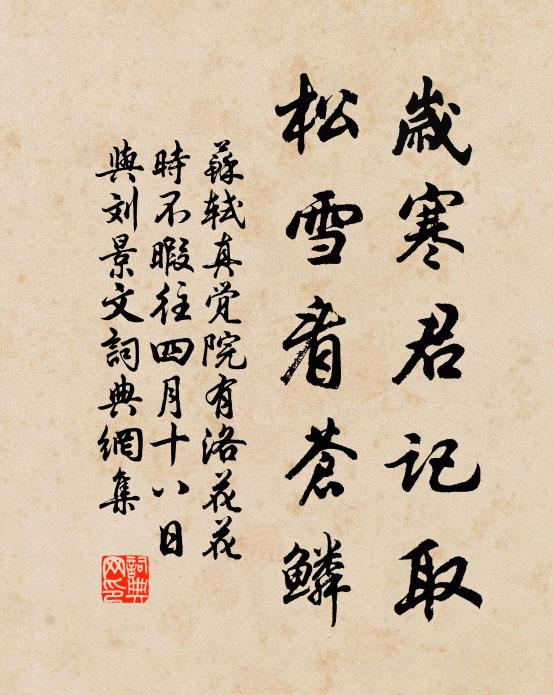 歲寒君記取
松雪看蒼鱗
蘇軾真觉院有洛花花
時不暇往四月十八日
與刘景文詞典網集
詞典网印